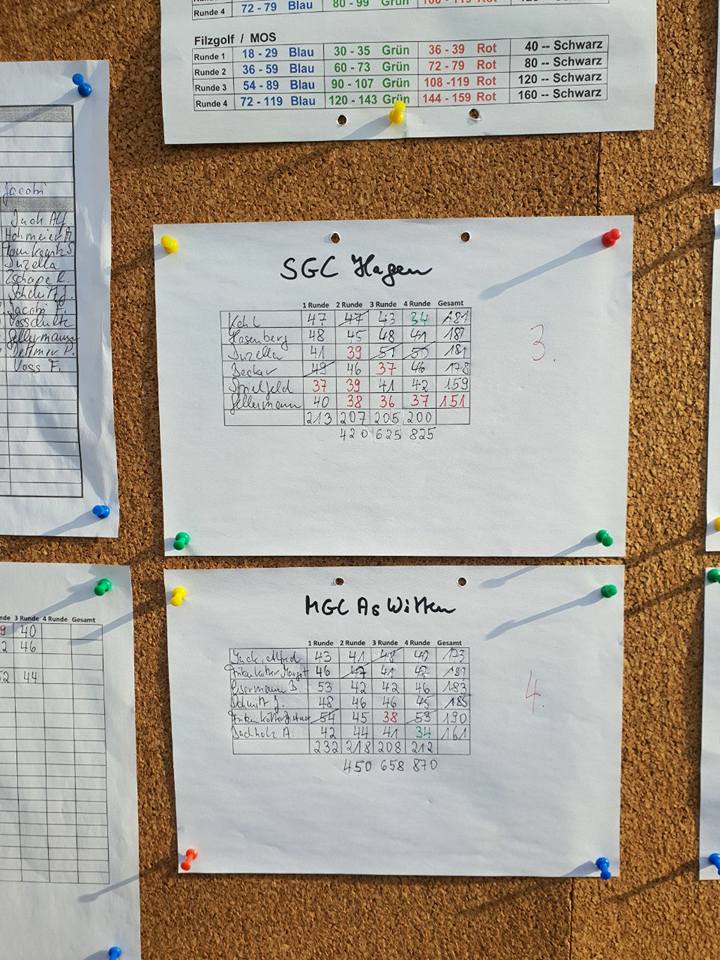 Runde 4 72 - 79 Blau 80 - 99 Grün
Filzgolf / MOS
Runde 1 18 - 29 Blau 30 - 35 Grün 36 - 39 Rot 40 -- Schwarz
Runde 2 36 - 59 Blau 60 - 73 Grün 72 - 79 Rot 80 -- Schwarz
Runde 3 54 - 89 Blau 90 - 107 Grün 108 -119 Rot 120 -- Schwarz
Runde 4 72 - 119 Blau 120 - 143 Grün 144 - 159 Rot 160 -- Schwarz
Jacobi
Duzella
Tschape R.
Jacobi F.
Vosschulte
Gellermann
Dettmer P.
Voss F.
SGC Hagen
1 Runde 2 Runde 3 Runde 4 Runde Gesamt
Kohl 47 47 43 34
Hosenberg 48 45 48 41 182
Duzella 41 39 51
Becker 49 46 37 46 178
Spielfeld 37 39 41 42 159
Gellermann 40 38 36 37 151
213 207 205 200
420 625 825
3.
3 Runde 4 Runde Gesamt
40
46
44
MGC As Witten
1 Runde 2 Runde 3 Runde 4 Runde Gesamt
43 41 48 173
46 47 41
Eisermann D 53 42 42 46 183
Schmitt J. 48 46 46 45 185
54 45 38 53 190
Buchholz A 42 44 41 34 161
232 218 208 212
450 658 870
4.